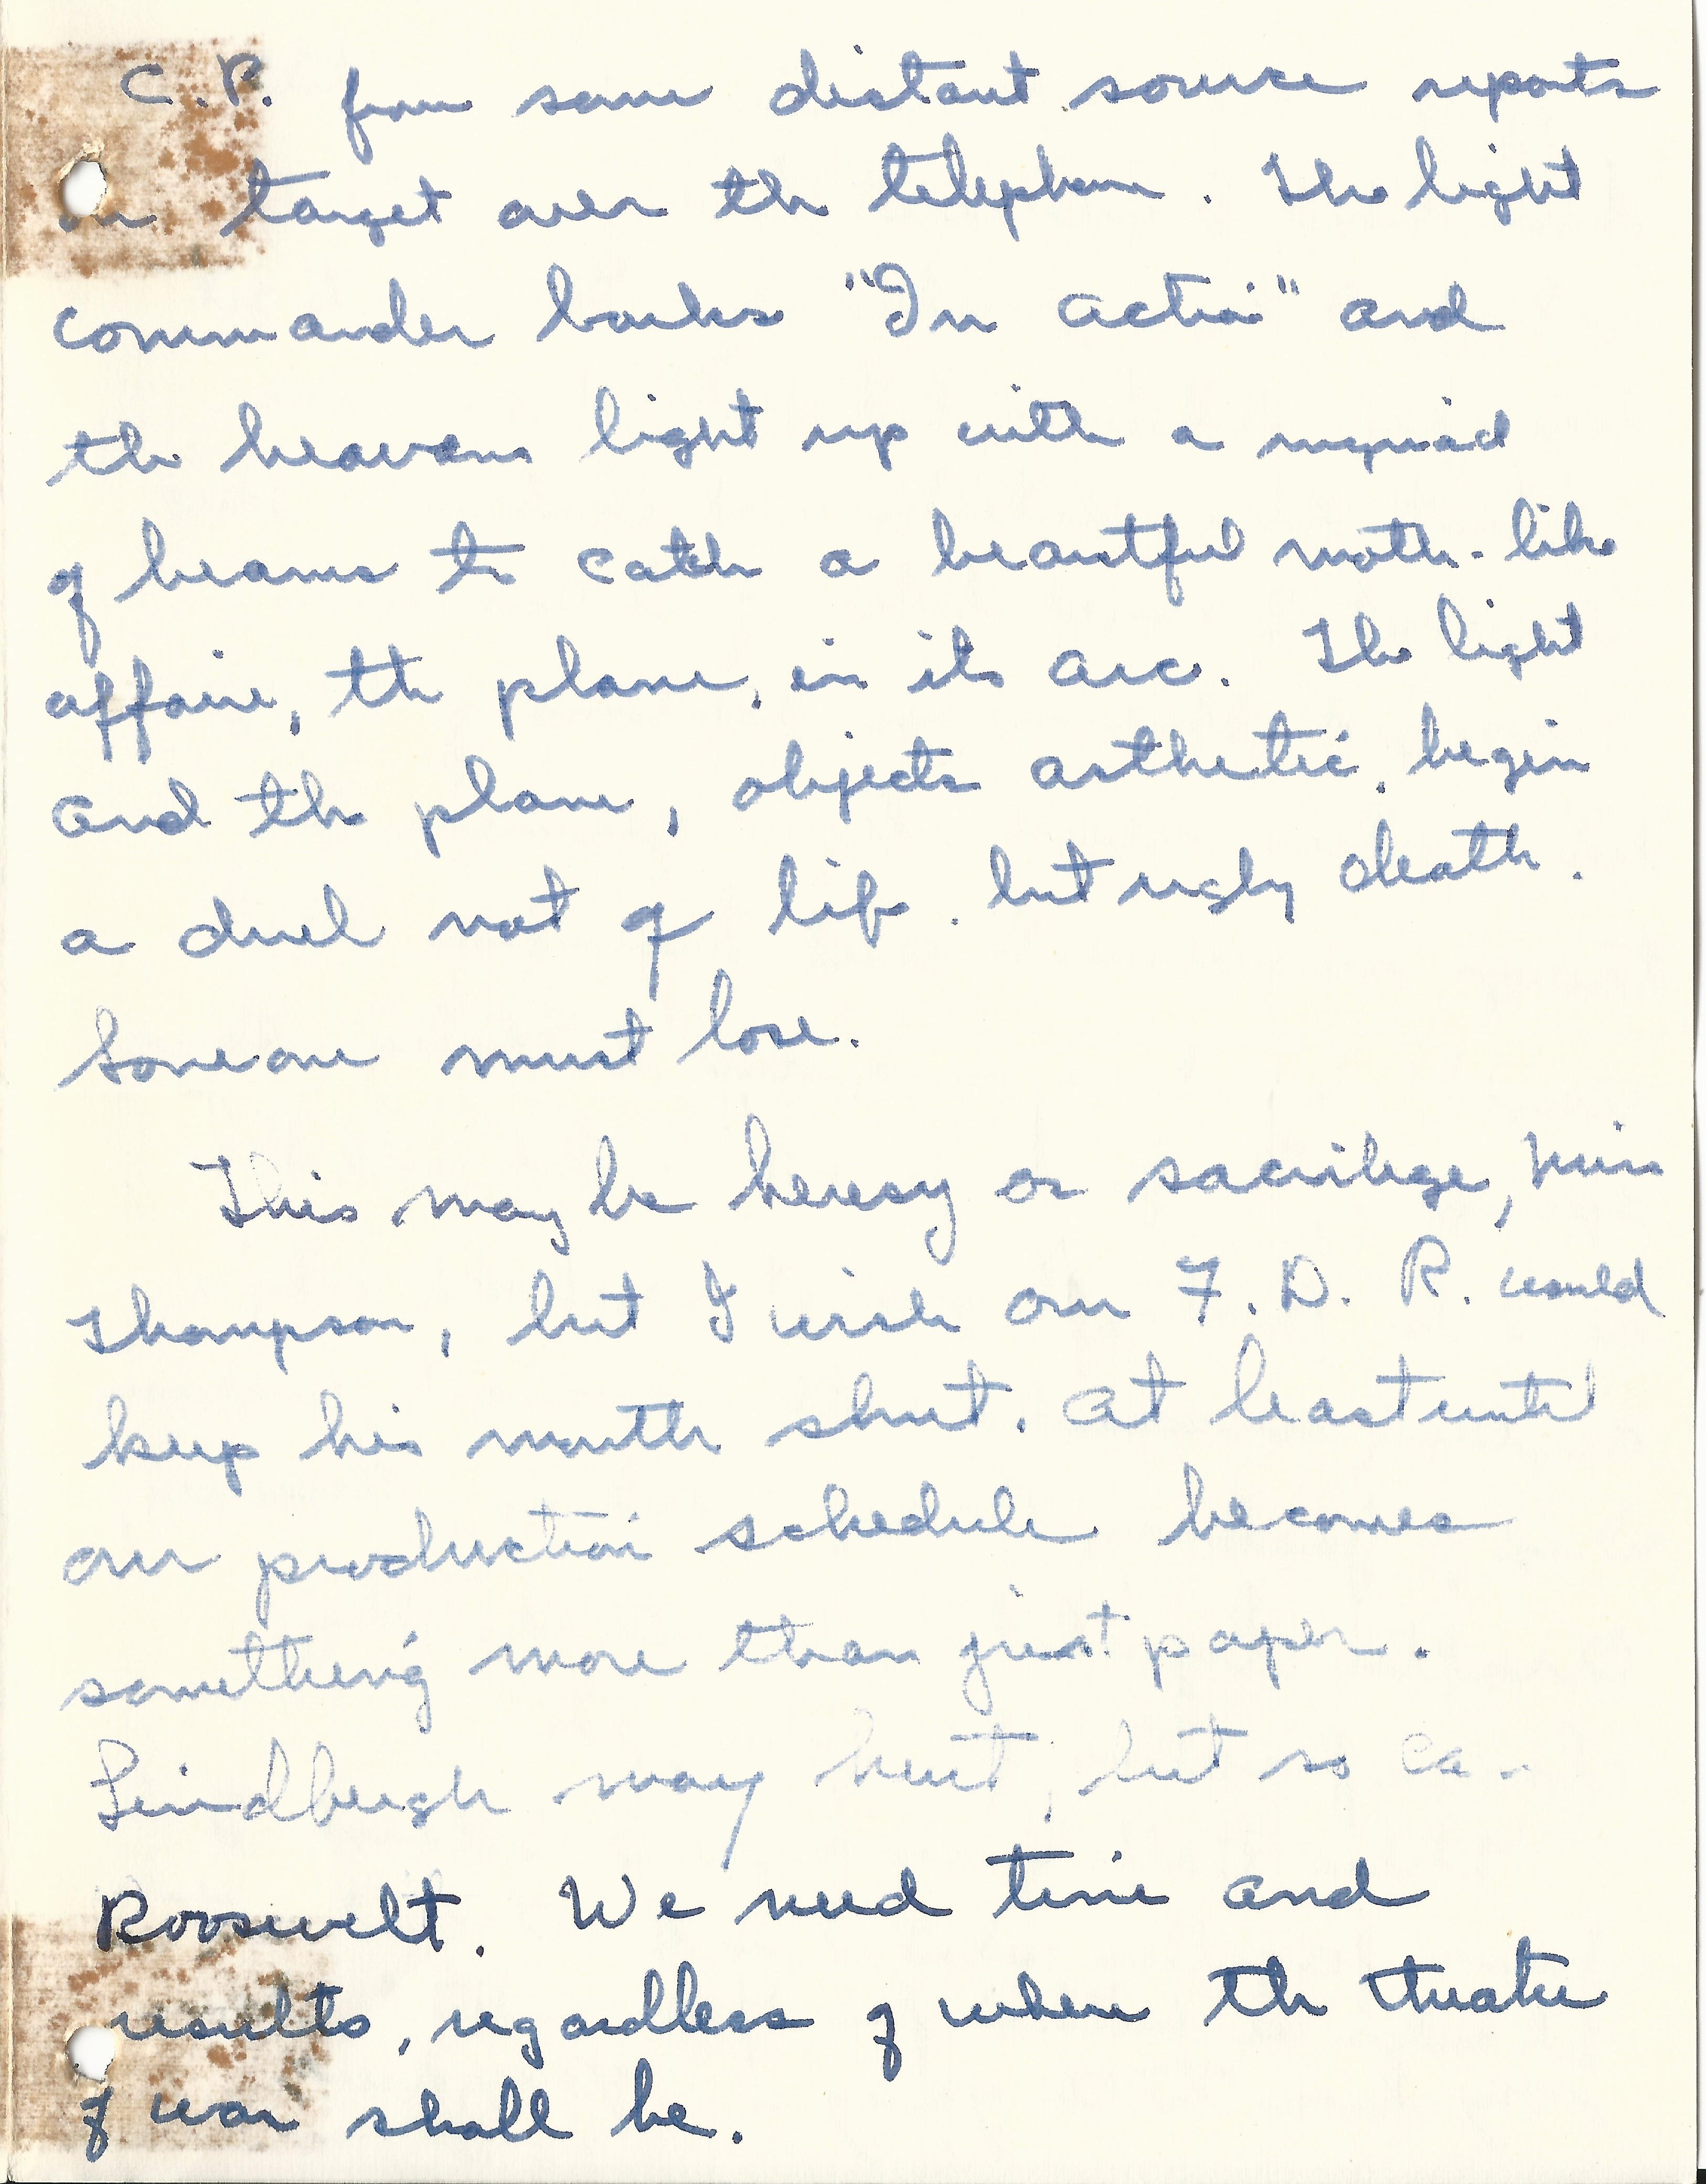 C.P. from some distant source reports
on target over the telephone. The light
commander barks "In action" and
the heavens light up with a myriad
of beams to catch a beautiful moth-like
affair, the plane, in its arc. The light
and the plane, objects asthetic, begin
a duel not of life, but ugly death.
Someone must lose.
This may be heresy or sacrilege, Miss
Thompson, but I wish our F. D. R. would
keep his mouth shut. At least until
our production schedule becomes
something more than just paper.
Lindbergh may hurt, but so can
Roosevelt. We need time and
results, regardless of where the theater
of war shall be.